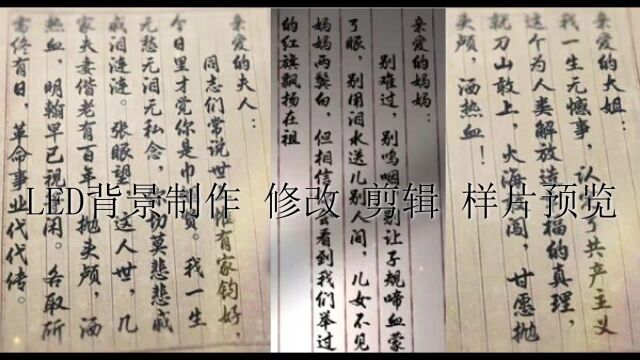 亲爱的夫人：
同志们常说世惟有家钧好，
今日里才觉你是巾贤。我一生
无愁无泪无私念，切莫悲悲戚
戚泪涟涟。张眼望，这人世，几
家夫妻偕老有百年。抛头颅，洒
热血，明翰早已视闲。各取所
需终有日，革命事业代代传。
亲爱的妈妈：
别难过，别呜咽，别让子规啼血蒙
了眼，别用泪水送儿别人间，儿女不见
妈妈两鬓白，但相信会看到我们举过
的红旗飘扬在祖
亲爱的大姐：
我一生无憾事，认定了共产主义
这个为人类解放造福的真理，
就刀山敢上，火海闯，甘愿抛
头颅，洒热血！
LED背景制作 修改 剪辑 样片预览